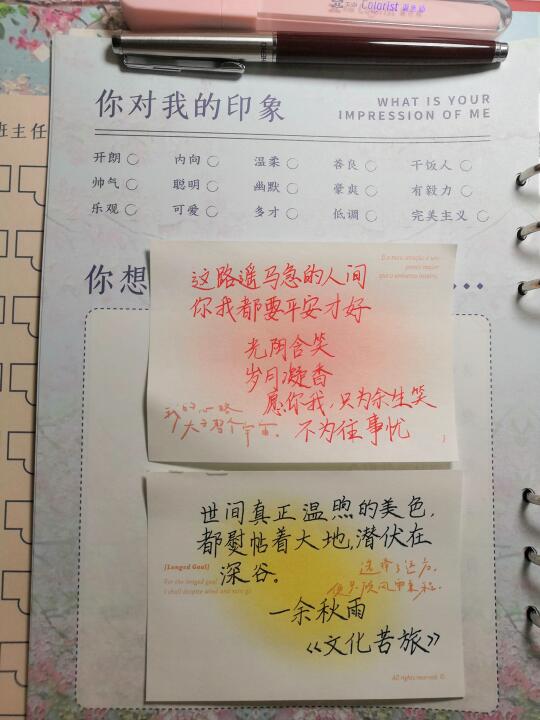 Colorist
你对我的印象
WHAT IS YOUR
IMPRESSION OF ME
班主任
开朗 内向 温柔 善良 干饭人
帅气 聪明 幽默 豪爽 有毅力
乐观 可爱 多才 低调 完美主义
你想
这路遥马急的人间
你我都要平安才好
光阴含笑
岁月凝香
愿你我，只为余生笑
不为往事忧
我的心略
大于整个宇宙.
世间真正温煦的美色，
都熨帖着大地,潜伏在
深谷。
[Longed Goal]
For the longed goal
I shall despite wind and rain go
选择了远方，
便只顾风雨兼程.
一余秋雨
《文化苦旅》
All rights reserved. ©